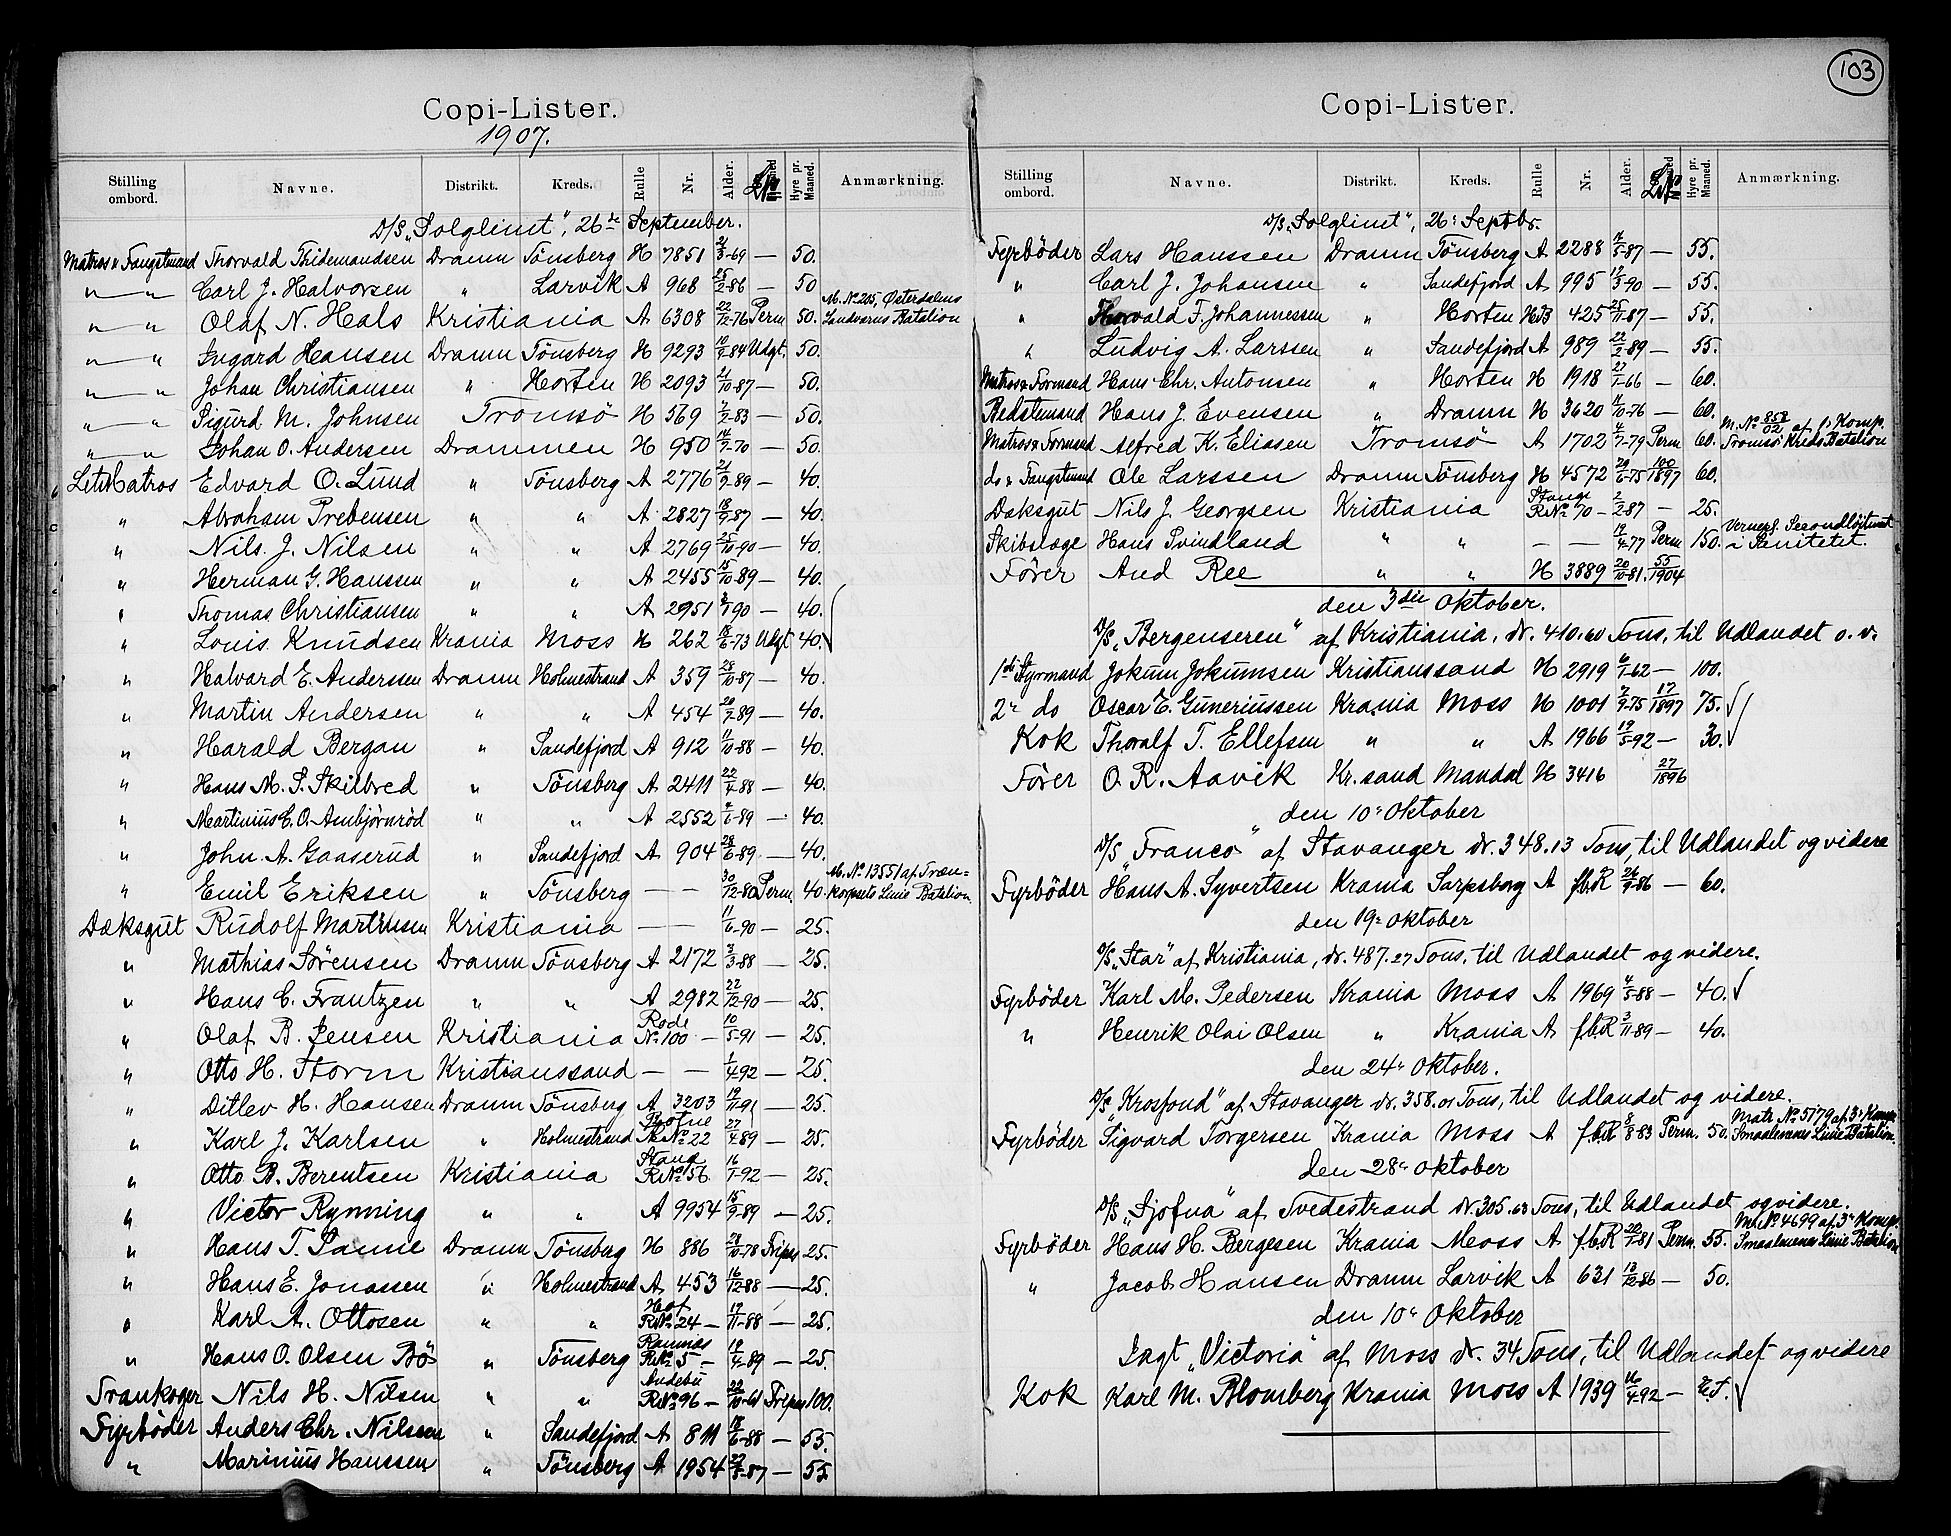 103
Copi-Lister.
1907.
Stilling ombord. Navne. Distrikt. Kreds. Rulle Nr. Alder. Hyre pr. Maaned. Anmærkning.
D/S „Solglimt“, 26de September.
Matros & Fangstmand Thorvald Thidemandsen Dramn Tönsberg H 7851 21/3-69 — 50.
" " Carl J. Halvorsen " Larvik A 968 25/2-86 — 50
" " Olaf N. Hals Kristiania A 6308 22/12-76 Perm 50. M. No 205, Österdalens Landværns Batalion
" " Ingard Hansen Dramn Tönsberg H 9293 10/9-84 Udgt. 50.
" " Johan Christiansen " Horten H 2093 21/10-87 — 50.
" " Sigurd M. Johnsen Tromsö H 569 /2-83 — 50.
" " Johan O. Andersen Drammen H 950 14/9-70 — 50.
Letmatros Edvard O. Lund " Tönsberg A 2776 21/9-89 — 40.
" Abraham Prebensen " " A 2827 18/9-87 — 40.
" Nils J. Nilsen " " A 2769 25/10-90 — 40.
" Herman G. Hanssen " " A 2455 15/10-89 — 40.
" Thomas Christiansen " " A 2951 90 — 40.
" Louis Knudsen Krania Moss H 262 /6-73 Udgt 40.
" Halvard E. Anderssen Dramn Holmestrand A 359 28/10-87 — 40.
" Martin Andersen " " A 454 20/7-89 — 40.
" Harald Bergan " Sandefjord A 912 11/10-88 — 40.
" Hans M. S. Skilbred " Tönsberg A 2411 22/4-88 — 40.
" Martinius C. O. Ambjörnröd " " A 2552 /6-89 — 40.
" John A. Gaaserud " Sandefjord A 904 28/6-89 — 40.
" Emil Eriksen " Tönsberg — — 30/12-80 Perm. 40 M. No 13551 af Træn= korpsets Linie Batalion.
Dæksgut Rudolf Martinsen Kristiania — — 11/6-90 — 25.
" Mathias Sörensen Dramn Tönsberg A 2172 3/3-88 — 25.
" Hans C. Frantzen " " A 2982 22/12-90 — 25.
" Olaf B. Jensen Kristiania Rode No 100 — 10/5-91 — 25.
" Otto H. Storm Kristianssand — — 1/4 92 — 25.
" Ditlev H. Hansen Dramn Tönsberg A 3203 /11-91 — 25.
" Karl J. Karlsen " Holmestrand R No 22 27/4 89 — 25.
" Otto B. Berentsen Kristiania Stang R No 56 16/1-92 — 25.
" Victor Rynning " " A 9954 15/9-89 — 25.
" Hans T. Sanne Dramn Tönsberg H 886 28/10-78 Fripas 25.
" Hans E. Jonassen " Holmestrand A 453 16/12-88 — 25.
" Karl A. Ottosen " " Hof R No 24 — 17/11-88 — 25.
" Hans O. Olsen Bö " Tönsberg Ramnæs R No 5 — 19/4-89 — 25.
Trankoger Nils H. Nilsen " " Andebu R No 96 — 22/10-61 Fripas 100.
Fyrböder Anders Chr. Nilssen " Sandefjord A 811 18/6-88 — 55.
" Marinius Hanssen " Tönsberg A 1954 22/8-87 — 55
Copi-Lister.
Stilling ombord. Navne. Distrikt. Kreds. Rulle Nr. Alder. Hyre pr. Maaned. Anmærkning.
D/S „Solglimt“, 26. Septbr.
Fyrböder Lars Hanssen Dramn Tönsberg A 2288 /5-87 — 55.
" Carl J. Johansen " Sandefjord A 995 12/3-90 — 55.
" Horvald F. Johannessen " Horten HB 425 25/11-87 — 55.
" Ludvig A. Larssen " Sandefjord A 989 22/2-89 — 55.
Matros & Formand Hans Chr. Antonsen " Horten H 1918 27/1-66 — 60.
Bedstemand Hans J. Evensen " Dramn H 3620 /10-76 — 60.
Matros & Formand Alfred K. Eliasen Tromsö A 1702 4/7-79 Perm 60. M. No 858/02 af 1. Komp. Tromsö Kreds Batalion
do & Fangstmand Ole Larssen Dramn Tönsberg H 4572 20/6-75 100/1897 60.
Dæksgut Nils J. Georgsen Kristiania Stange R No 70 — 2/2-87 — 25.
Skibslæge Hans Svindland " " — — 19/4-77 Perm 150. Vernepl. Secondlöitnant i Sanitetet.
Förer And Ree " " H 3889 20/10-81. 55/1904
den 3die Oktober.
D/S „Bergenseren“ af Kristiania, dr. 410.60 Tons, til Udlandet o. v.
1ste Styrmand Jokum Jokumsen Kristianssand H 2919 6/1-62 — 100.
2. do Oscar E. Guneriussen Krania Moss H 1001 /9-75 17/1897 75.
Kok Thoralf T. Ellefsen " " A 1966 19/5-92 — 30.
Förer O. R. Aavik Kr.sand Mandal H 3416 27/1896
den 10. Oktober
D/S „Franco“ af Stavanger dr. 348.13 Tons, til Udlandet og videre
Fyrböder Hans A. Syvertsen Krania Sarpsborg A f.b.R 26/9-86 — 60.
den 19. Oktober
D/S „Star“ af Kristiania, dr. 487.27 Tons, til Udlandet og videre.
Fyrböder Karl M. Pedersen Krania Moss A 1969 /5-88 — 40.
" Henrik Olai Olsen " Krania A f.b.R 3/11-89 — 40.
den 24. Oktober.
D/S „Krosfond“ af Stavanger dr. 358.01 Tons, til Udlandet og videre.
Fyrböder Sigvard Torgersen Krania Moss A f.b.R 8/8-83 Perm. 50. Matr. No 5179 af 3. Komp. Smaalenenes Linie Batalion
den 28. Oktober
D/S „Sjofna“ af Tvedestrand dr. 305.63 Tons, til Udlandet og videre.
Fyrböder Hans H. Bergesen Krania Moss A f.b.R /1-81 Perm. 55. M. No 4699 af 3. Komp. Smaalenenes Linie Batalion
" Jacob Hansen Dramn Larvik A 631 13/12-86 — 50.
den 10. Oktober
Jagt „Victoria“ af Moss dr. 34 Tons, til Udlandet og videre
Kok Karl M. Blomberg Krania Moss A 1939 16/4-92 —